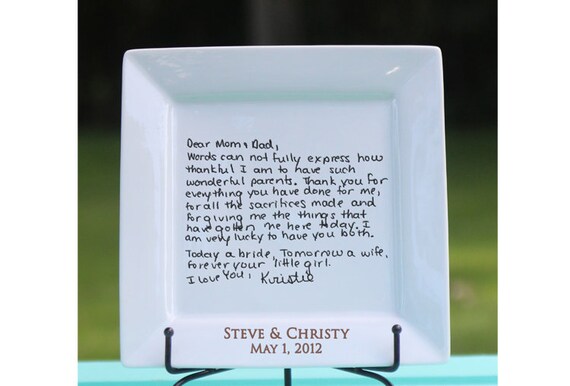 Dear Mom & Dad,
Words can not fully express how
thankful I am to have such
wonderful parents. Thank you for
everything you have done for me,
for all the sacrifices made and
for giving me the things that
have gotten me here today. I
am very lucky to have you both.
Today a bride, Tomorrow a wife,
forever your little girl.
I Love You, Kristie
STEVE & CHRISTY
MAY 1, 2012